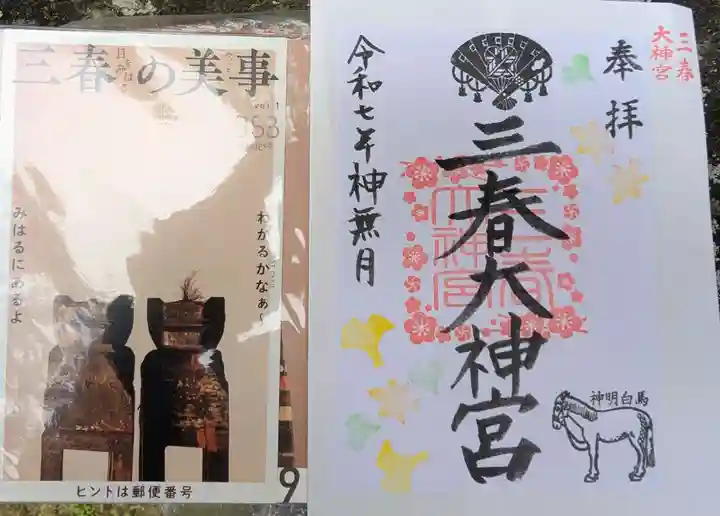 三春の美事
vol.1
わかるかなぁ〜
みはるにあるよ
ヒントは郵便番号
9
三春
大神宮
奉拝
三春大神宮
令和七年神無月
神明白馬